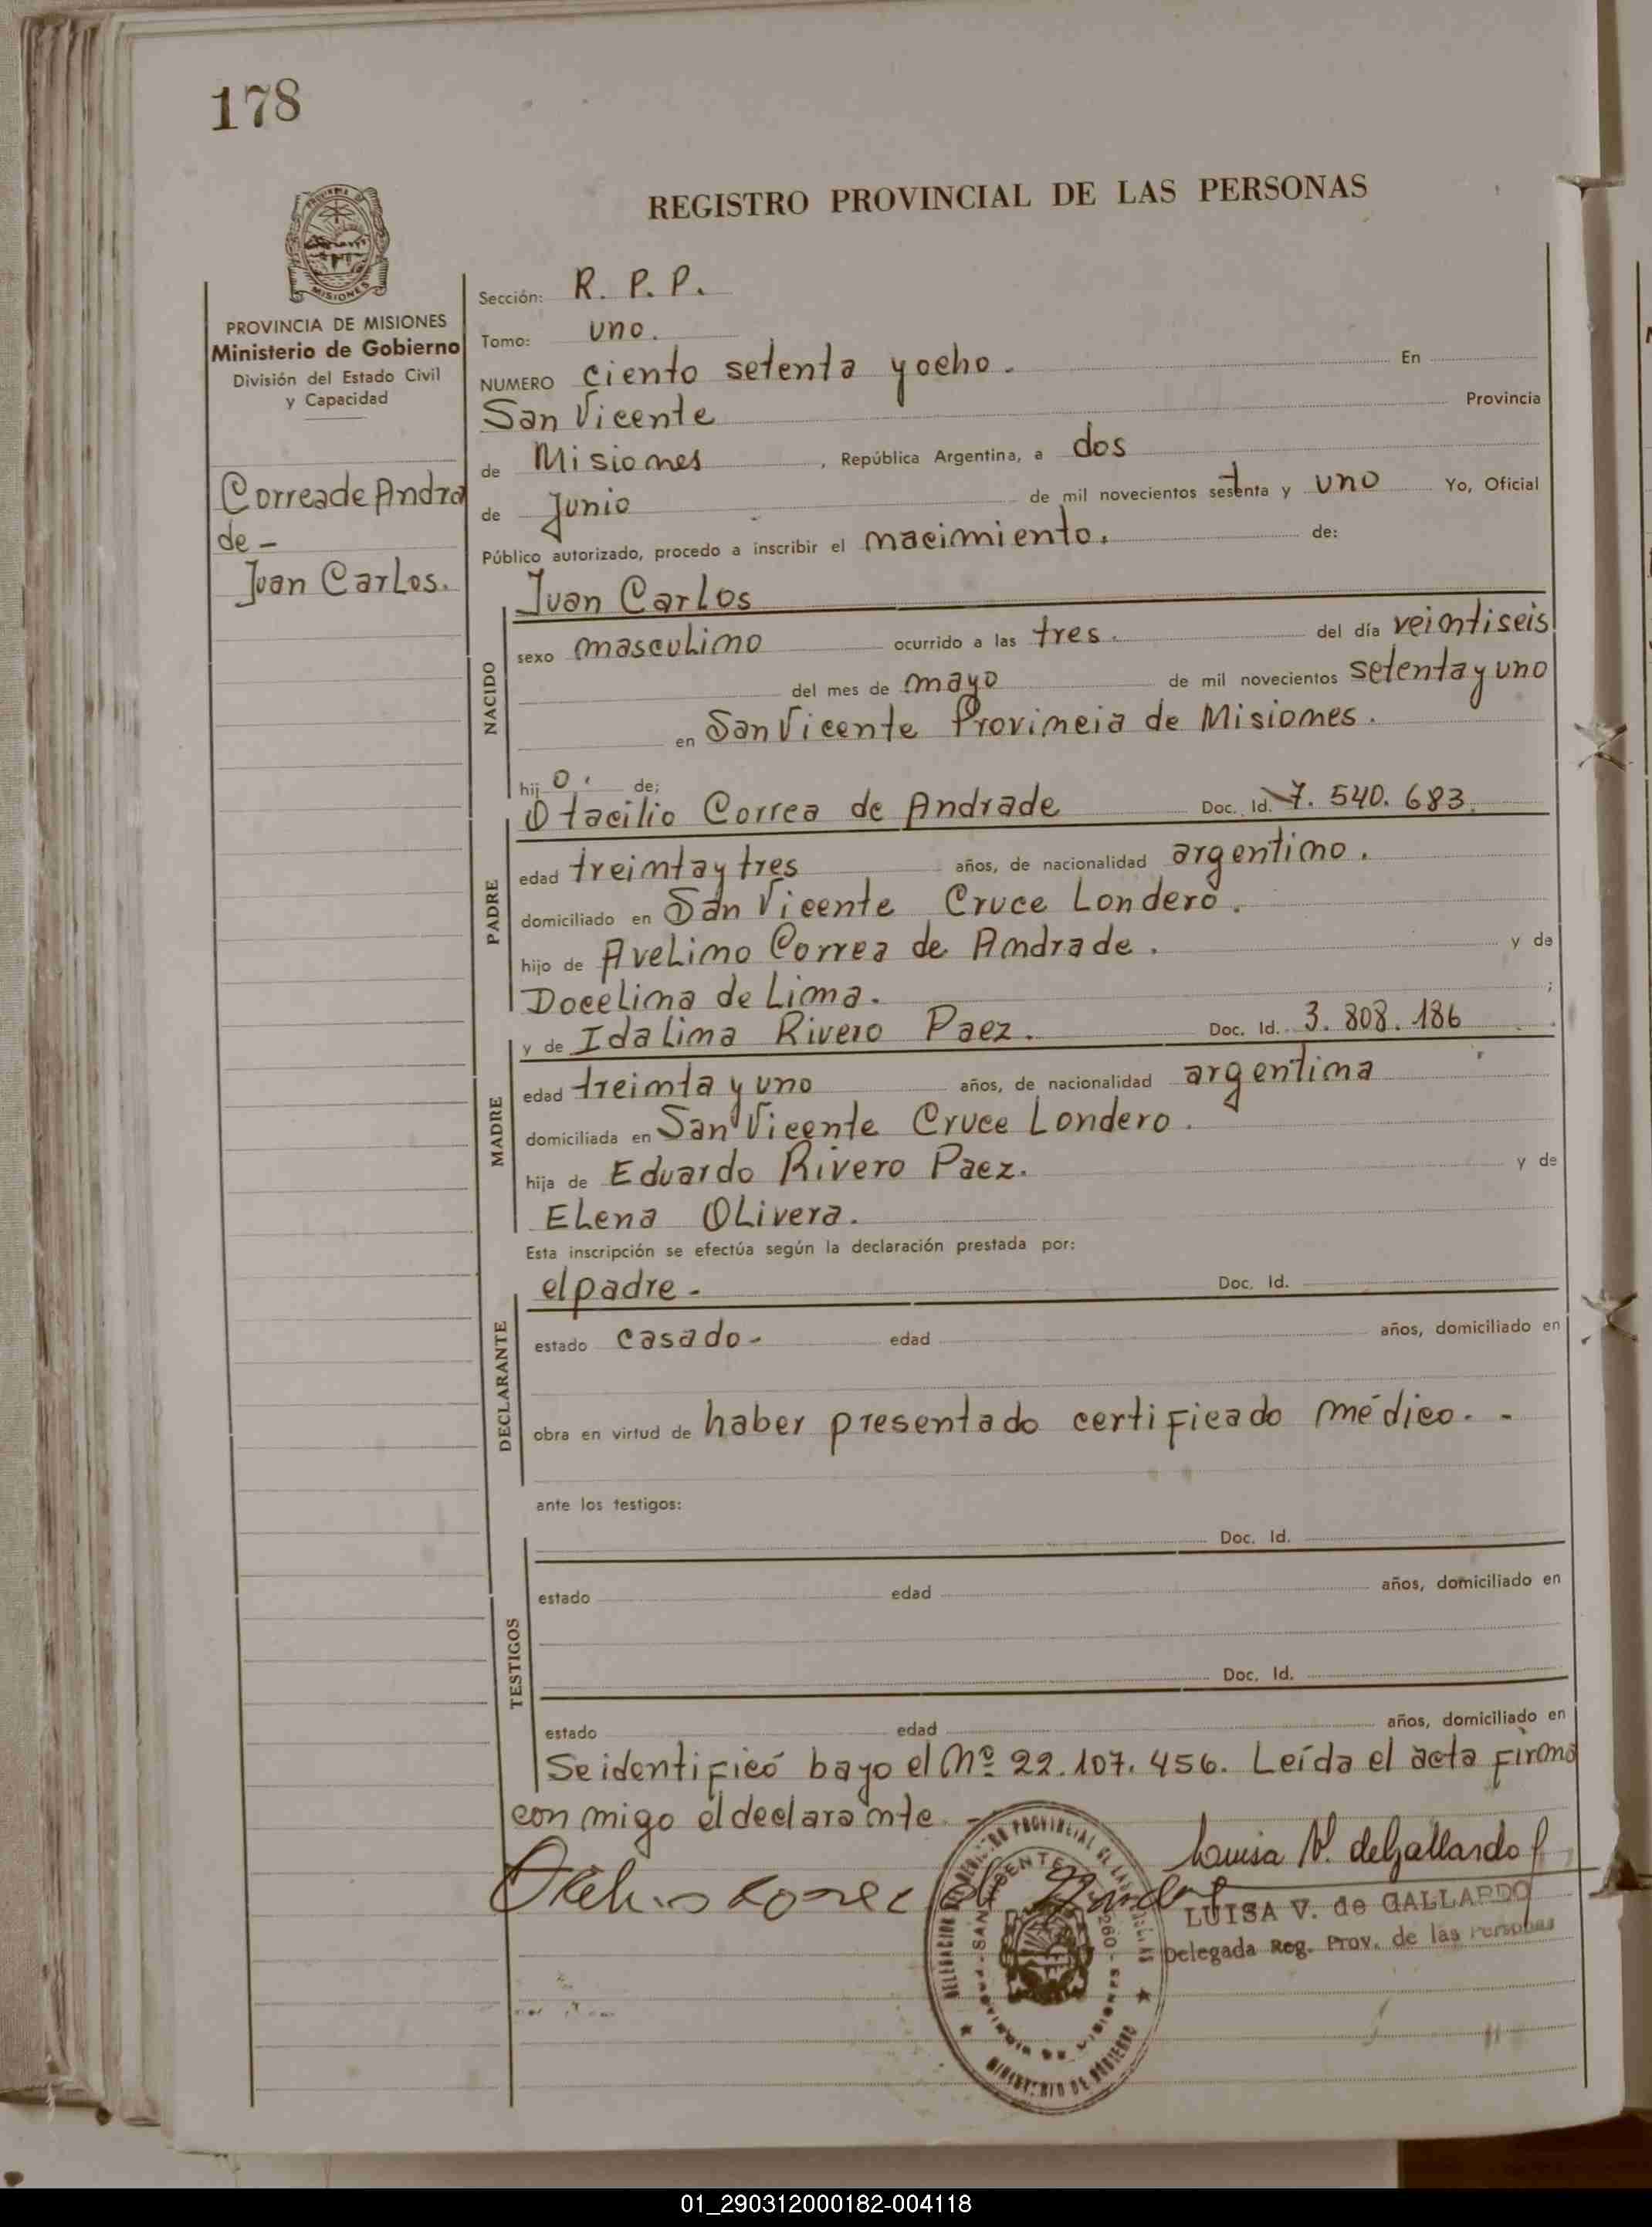 178
REGISTRO PROVINCIAL DE LAS PERSONAS
MISIONES
PROVINCIA DE MISIONES
Ministerio de Gobierno
División del Estado Civil
y Capacidad
Correa de Andra
de -
Juan Carlos.
Sección: R. P. P.
Tomo: uno.
NUMERO ciento setenta y ocho. En
San Vicente Provincia
de Misiones, República Argentina, a dos
de Junio de mil novecientos setenta y uno Yo, Oficial
Público autorizado, procedo a inscribir el nacimiento. de:
NACIDO
Juan Carlos
sexo masculino ocurrido a las tres. del día veintiseis
del mes de mayo de mil novecientos setenta y uno
en San Vicente Provincia de Misiones.
hijo. de;
PADRE
Otacilio Correa de Andrade Doc. Id. 7.540.683.
edad treinta y tres años, de nacionalidad argentino.
domiciliado en San Vicente Cruce Londero.
hijo de Avelino Correa de Andrade. y de
Docelina de Lima. ;
MADRE
y de Idalina Rivero Paez. Doc. Id. 3.808.186
edad treinta y uno años, de nacionalidad argentina
domiciliada en San Vicente Cruce Londero.
hija de Eduardo Rivero Paez. y de
Elena Olivera.
Esta inscripción se efectúa según la declaración prestada por:
DECLARANTE
el padre - Doc. Id.
estado casado - edad años, domiciliado en
obra en virtud de haber presentado certificado médico. -
ante los testigos:
TESTIGOS
Doc. Id.
estado edad años, domiciliado en
Doc. Id.
estado edad años, domiciliado en
Se identificó bayo el Nº 22.107.456. Leída el acta firma
con migo el declarante. -
Luisa V. de Gallardo
LUISA V. de GALLARDO
Delegada Reg. Prov. de las Personas
SAN VICENTE
PROVINCIA DE MISIONES
MINISTERIO DE GOBIERNO
01_290312000182-004118